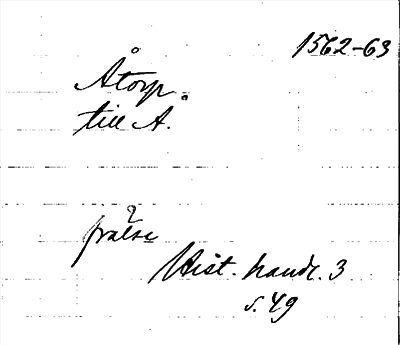 1562-63
Åtorp
till Å.
?
frälse
Hist. handl. 3
s. 49